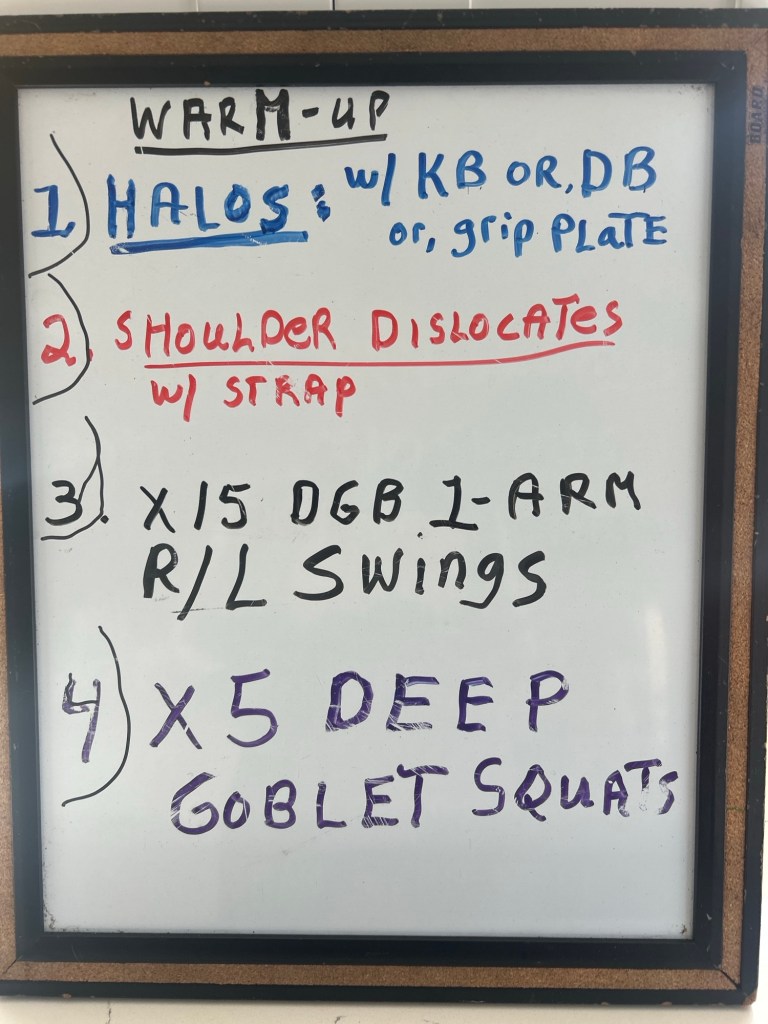 WARM-UP
1) HALOS: w/ KB OR, DB
or, grip PLaTE
2) SHOULDeR DISLOCATes
W/ STRAP
3). X15 DGB 1-ARM
R/L SWings
4) X5 DEEP
GOBLET SQUATs
BOARD